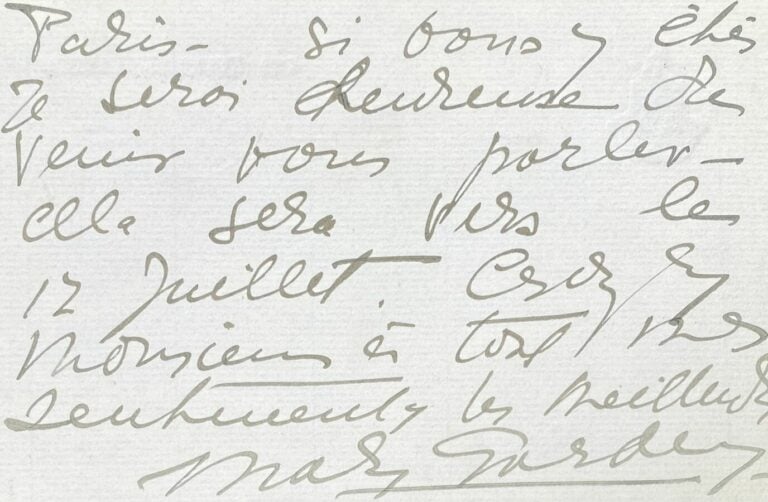 Paris - si vous y êtes
Je serai heureuse de
venir vous parler -
cela sera vers le
12 Juillet. Croyez
Monsieur à tout mes
sentiments les meilleurs
Mary Garden